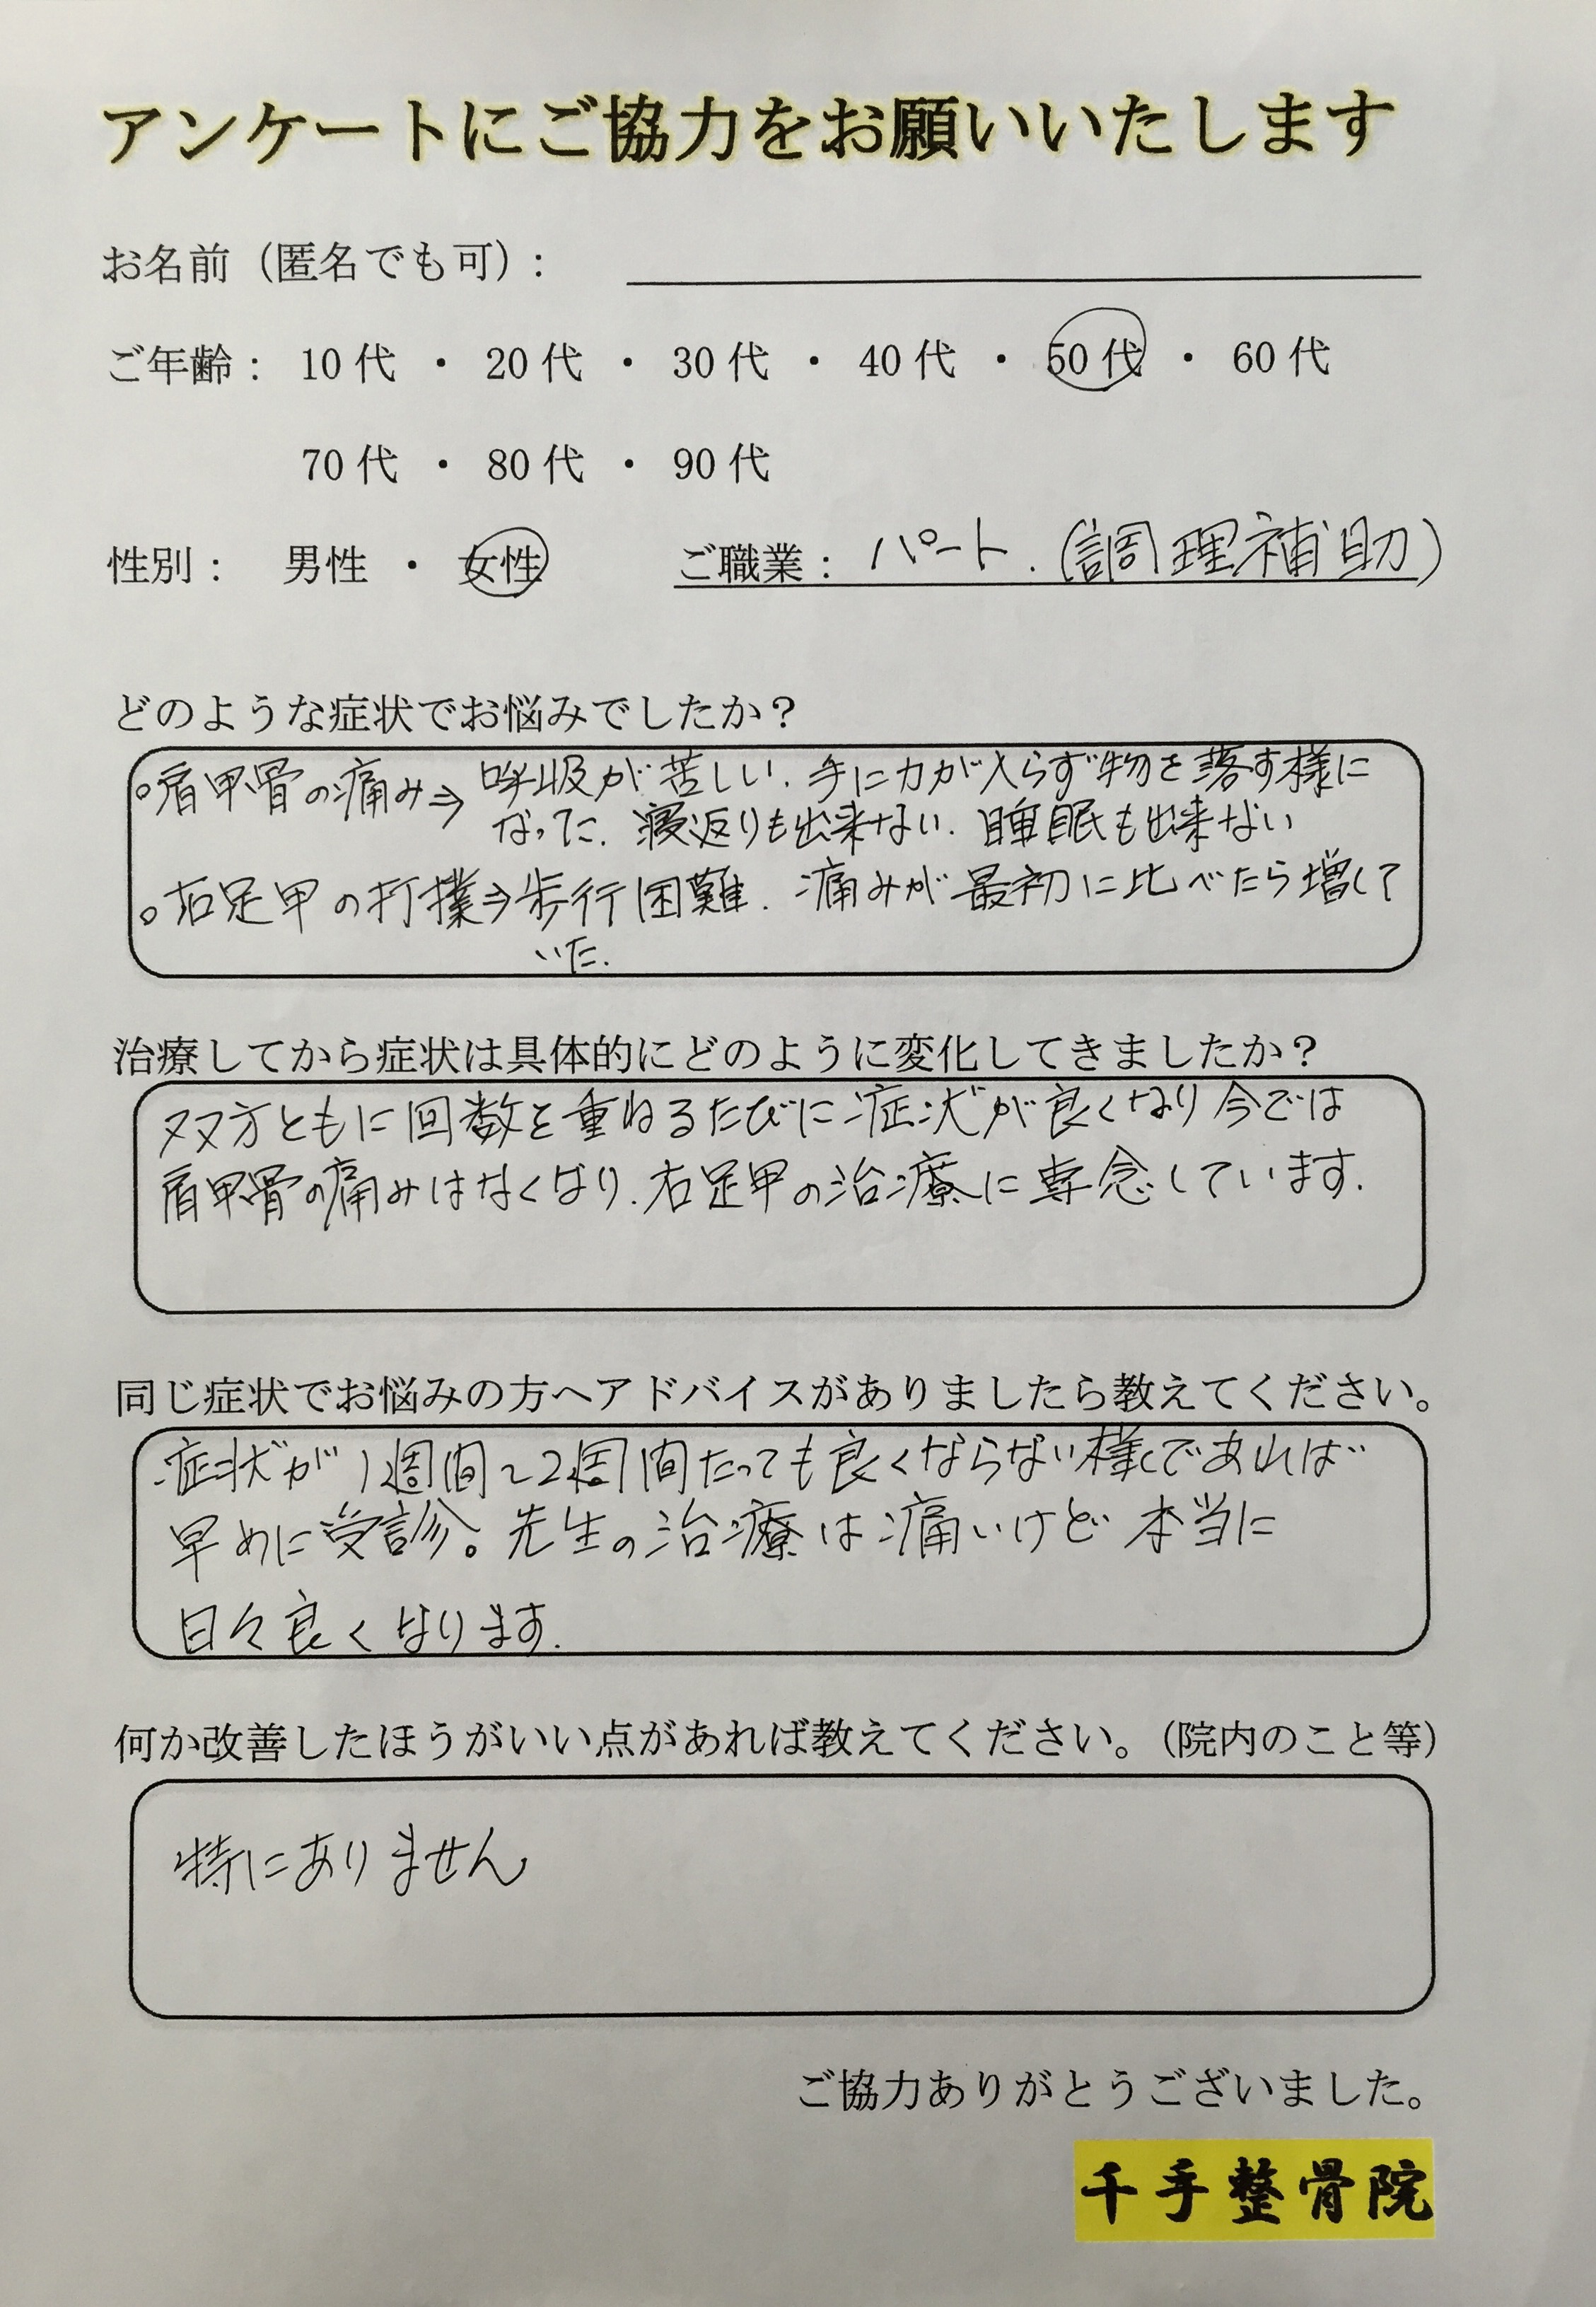 アンケートにご協力をお願いいたします
お名前（匿名でも可）：
ご年齢： 10代 ・ 20代 ・ 30代 ・ 40代 ・ 50代 ・ 60代
70代 ・ 80代 ・ 90代
性別： 男性 ・ 女性 ご職業： パート.（調理補助）
どのような症状でお悩みでしたか？
○肩甲骨の痛み⇒ 呼吸が苦しい. 手に力が入らず物を落す様に
なった. 寝返りも出来ない. 睡眠も出来ない
○右足甲の打撲⇒歩行困難. 痛みが最初に比べたら増して
いた.
治療してから症状は具体的にどのように変化してきましたか？
双方ともに回数を重ねるたびに症状が良くなり今では
肩甲骨の痛みはなくなり. 右足甲の治療に専念しています.
同じ症状でお悩みの方へアドバイスがありましたら教えてください。
症状が1週間〜2週間たっても良くならない様であれば
早めに受診。先生の治療は痛いけど本当に
日々良くなります.
何か改善したほうがいい点があれば教えてください。（院内のこと等）
特にありません
ご協力ありがとうございました。
千手整骨院